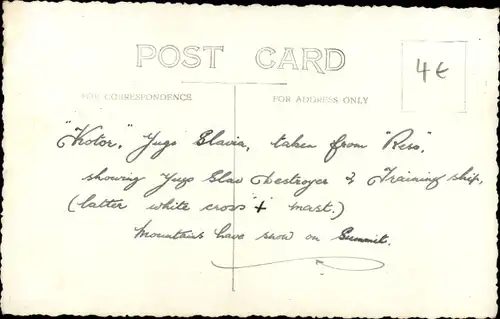 POST CARD
4€
FOR CORRESPONDENCE
FOR ADDRESS ONLY
"Kotor," Yugo Slavia, taken from
showing Yugo Slav Destroyer & Training ship,
(latter white cross + mast.)
Mountains have snow on Summit.